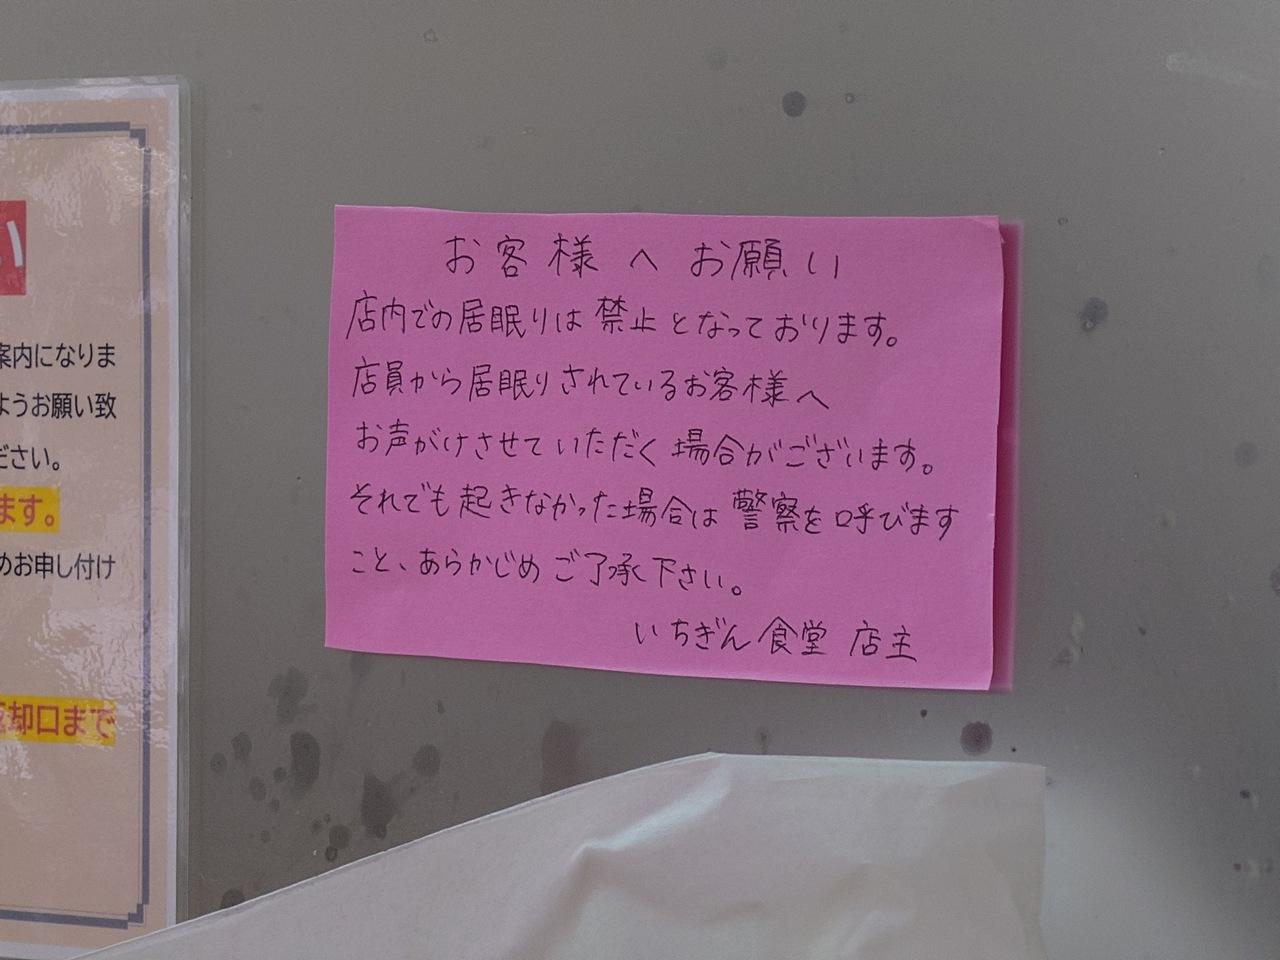 い
案内になりま
ようお願い致
ださい。
ます。
めお申し付け
却口まで
お客様へお願い
店内での居眠りは禁止となっております。
店員から居眠りされているお客様へ
お声がけさせていただく場合がございます。
それでも起きなかった場合は警察を呼びます
こと、あらかじめご了承下さい。
いちぎん食堂 店主